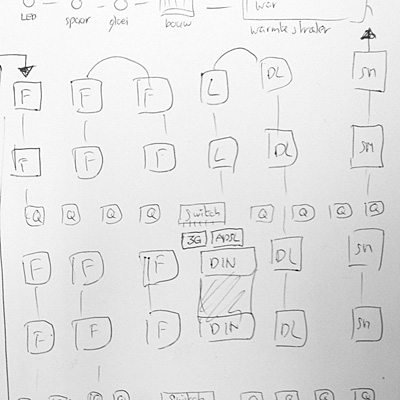 LED spaar gloei bouw
warmtestraler
F F F L DL sm
F F F L DL sm
Q Q Q Q Switch Q Q Q Q
3G ADSL
F F F DIN DL sm
F F F DIN DL sm
Q Q Q Switch Q Q Q Q